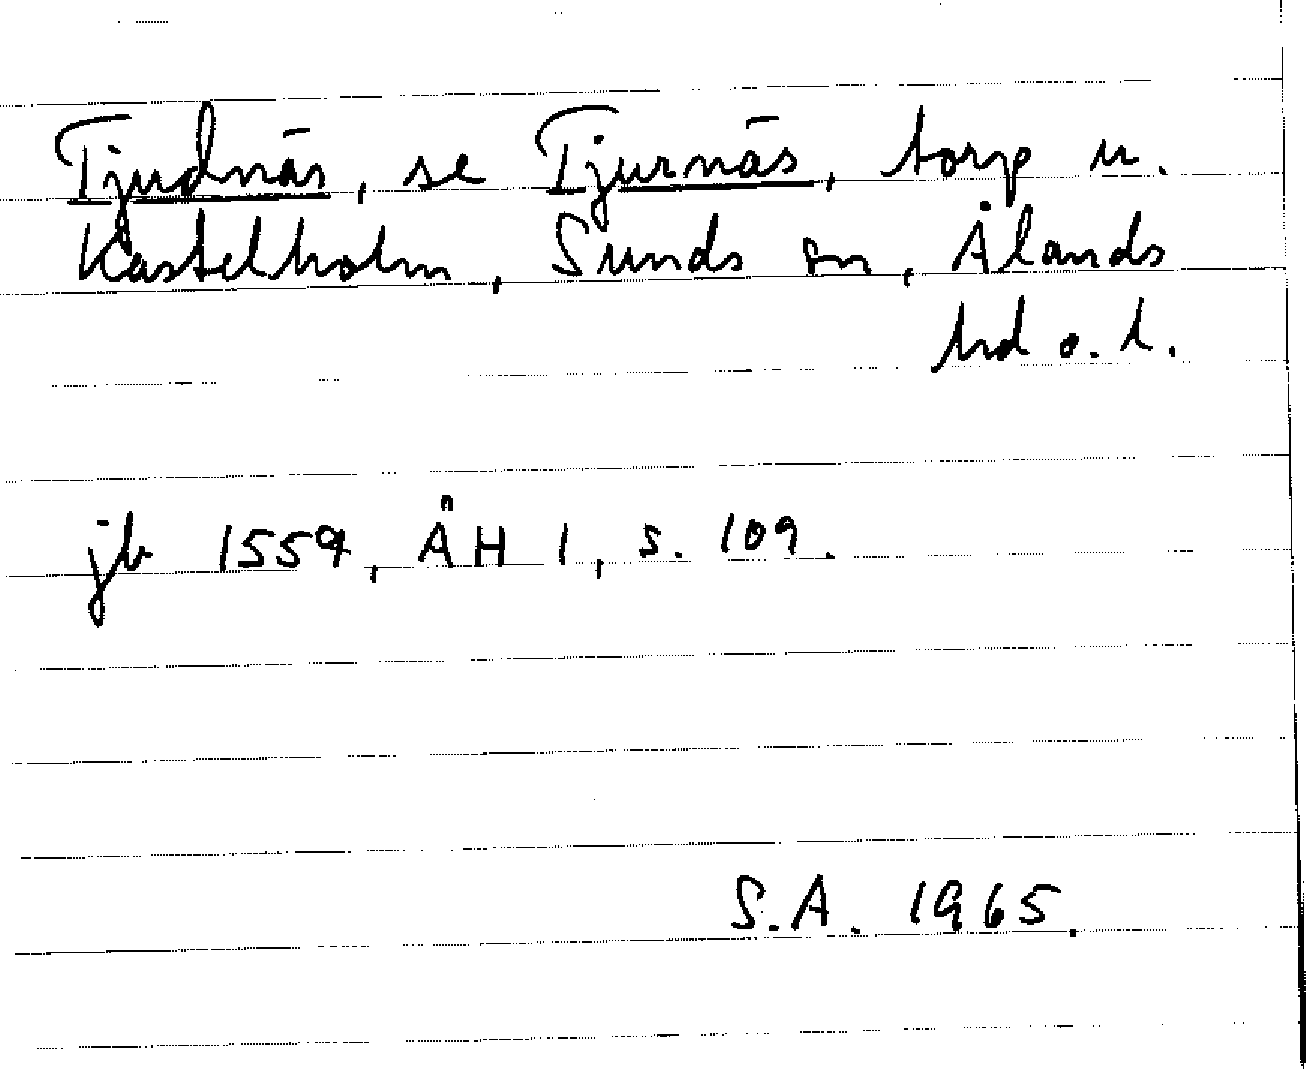 Tjudnäs, se Tjurnäs, torp u.
Kastelholm, Sunds sn, Ålands
hd o. l.
jb 1559, ÅH 1, s. 109.
S.A. 1965.